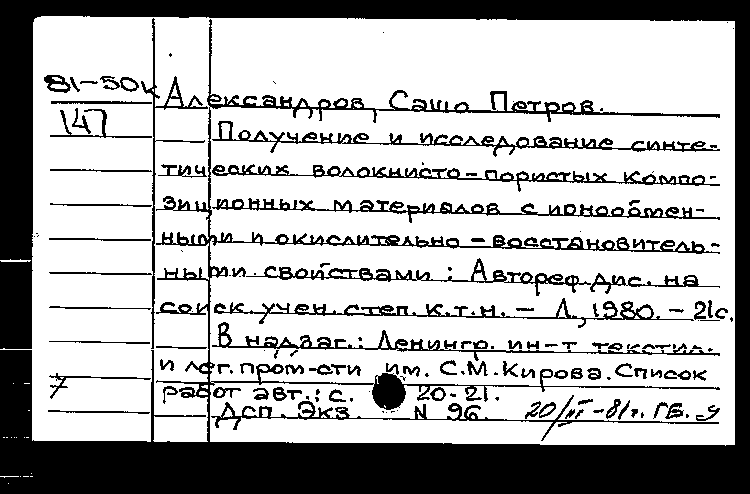 81-50к Александров, Сашо Петров.
147
Получение и исследование синте-
тических волокнисто-пористых компо-
зиционных материалов с ионообмен-
ными и окислительно-восстановитель-
ными свойствами: Автореф. дис. на
соиск. учен. степ. к.т.н. - Л., 1980. - 21с.
В надзаг.: Ленингр. ин-т текстил.
и лег. пром-сти им. С.М. Кирова. Список
7 работ авт.: с. 20-21.
Дсп. Экз. N 96. 20/III-81г. ГБ.